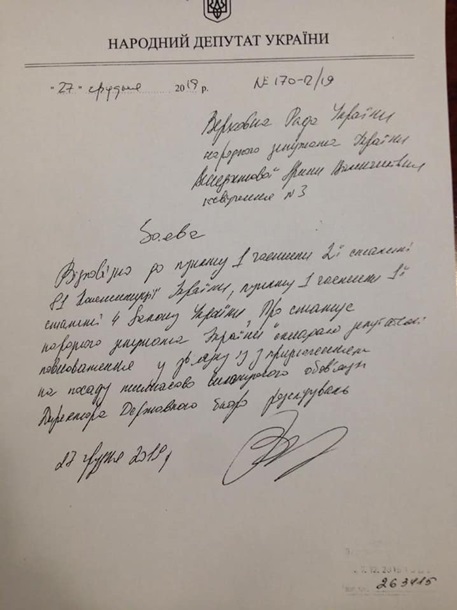 НАРОДНИЙ ДЕПУТАТ УКРАЇНИ
"27" грудня 2019 р. № 170-12/19
Верховна Рада України
народного депутата України
Венедіктової Ірини Валентинівни
посвідчення №3
Заява
Відповідно до пункту 1 частини 2ї статті
81 Конституції України, пункту 1 частини 1ї
статті 4 Закону України "Про статус
народного депутата України" складаю депутатські
повноваження у зв'язку із призначенням
на посаду тимчасово виконуючого обов'язки
Директора Державного бюро розслідувань
27 грудня 2019р
263415